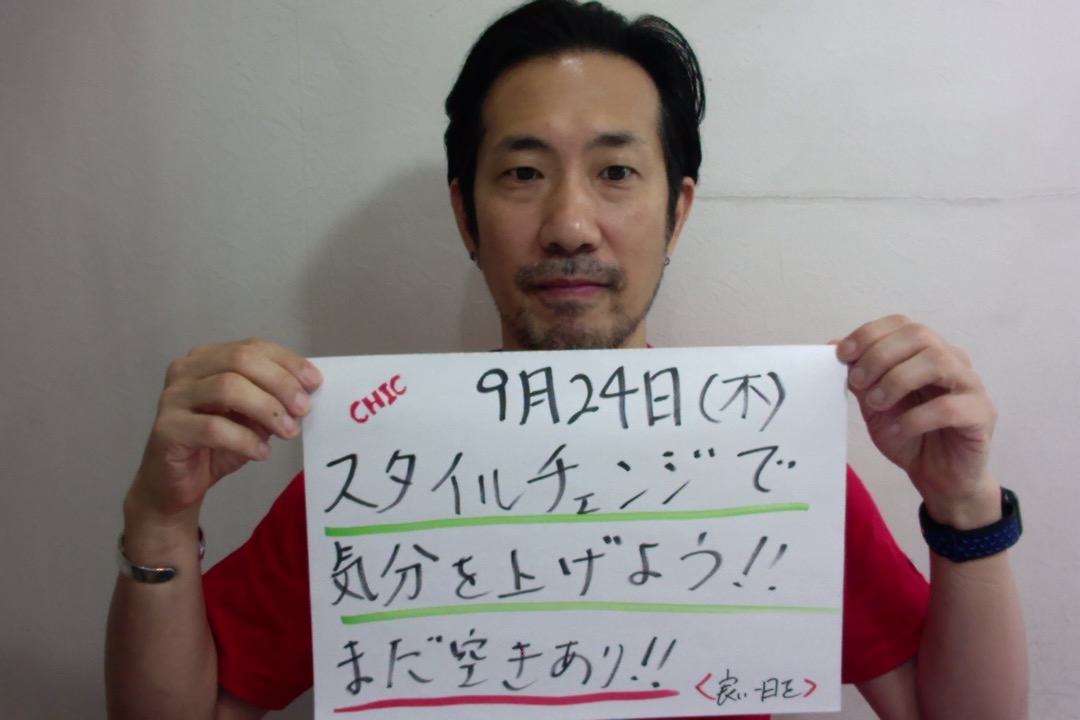 CHIC
9月24日(木)
スタイルチェンジで
気分を上げよう!!
まだ空きあり!!
<良い一日を>